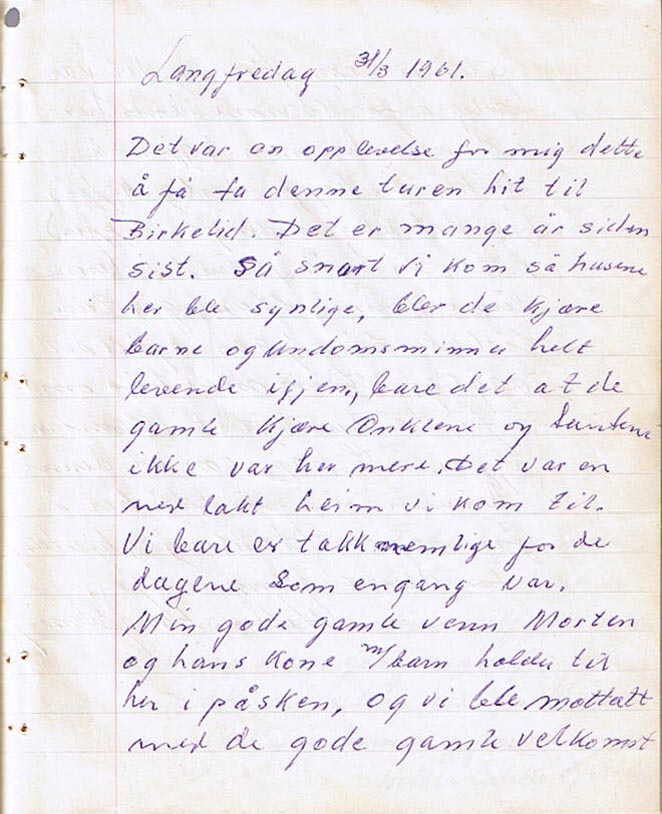 Langfredag 31/3 1961.
Det var en opplevelse for mig dette
å få ta denne turen hit til
Birkelid. Det er mange år siden
sist. Så snart vi kom så husene
her ble synlige, bler de kjære
barne og undomsminner helt
levende igjen, bare det at de
gamle kjære Onklene og tantene
ikke var her mere. Det var en
ned lakt heim vi kom til.
Vi bare er takknemlige for de
dagene som engang var.
Min gode gamle venn Morten
og hans kone m/barn holder til
her i påsken, og vi ble mottatt
med de gode gamle velkomst